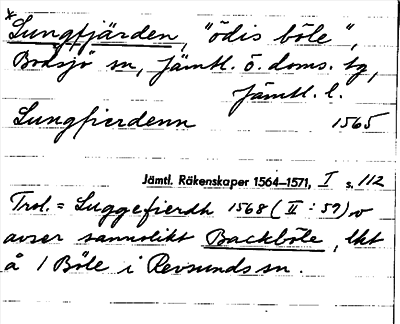 * Lungfjärden, "ödis böle",
Bodsjö sn, Jämtl. ö. doms. tg,
Jämtl. l.
Lungfierdenn 1565
Jämtl. Räkenskaper 1564–1571, I s. 112
Trol. = Luggefierdh 1568 (II : 59) o
avser sannolikt Backböle, lkt
å 1 Böle i Revsunds sn.